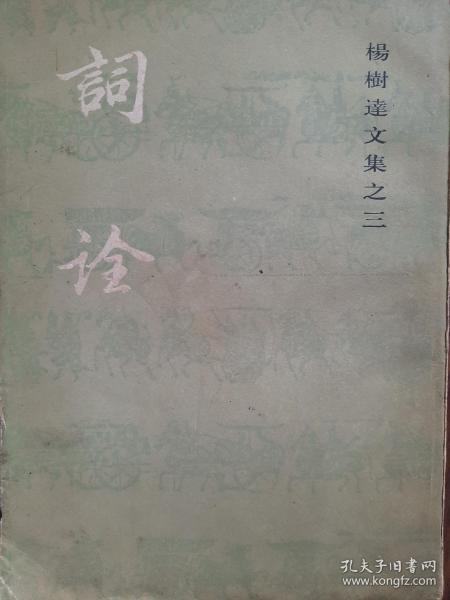 楊樹達文集之三
詞詮
孔夫子旧书网
www.kongfz.com